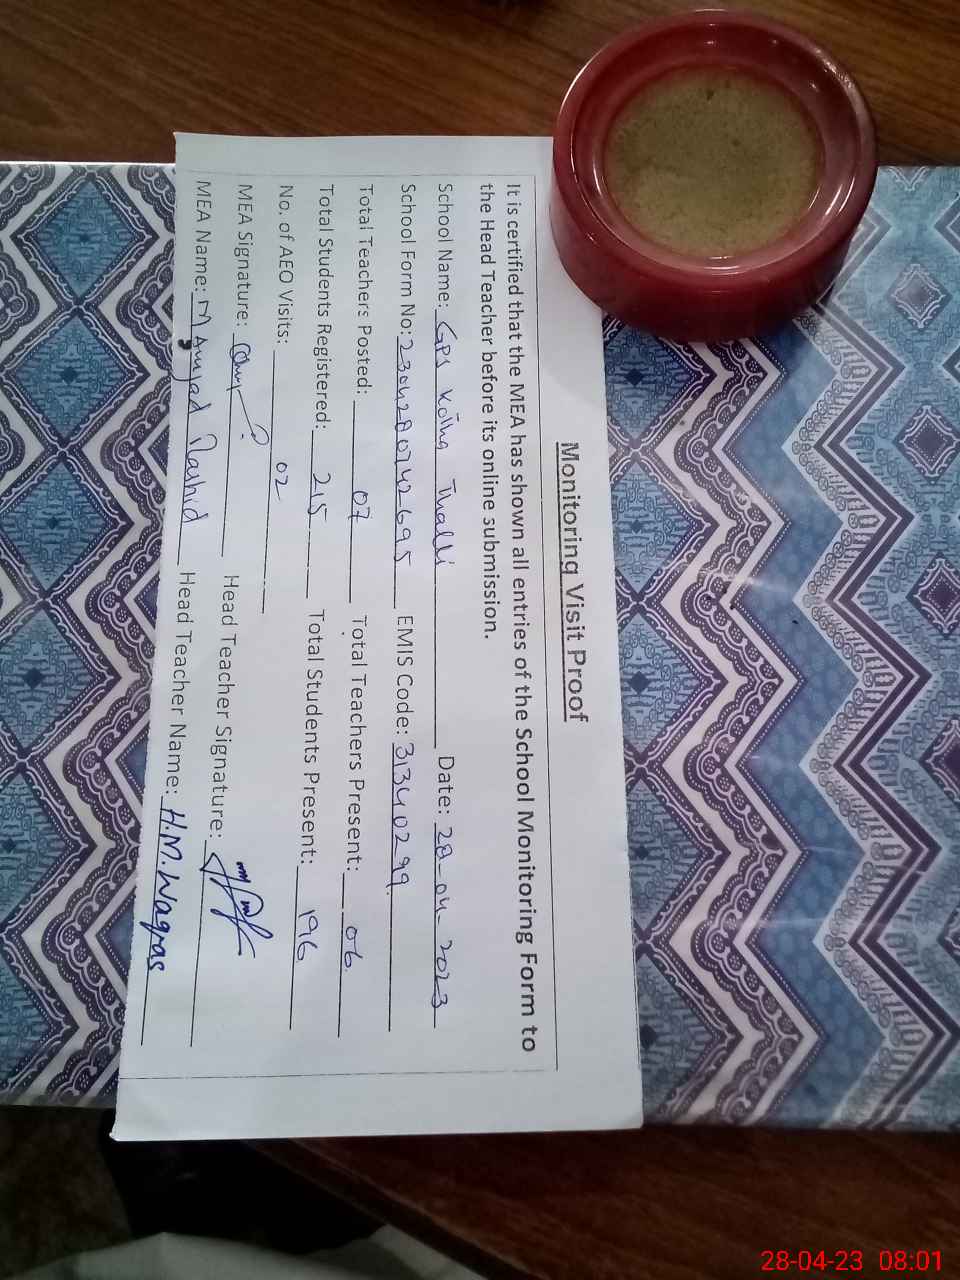 Monitoring Visit Proof
It is certified that the MEA has shown all entries of the School Monitoring Form to
the Head Teacher before its online submission.
School Name: GPS Date: 28-04-2023
School Form No: 2304280742695 EMIS Code: 31340299
Total Teachers Posted: 07 Total Teachers Present: 06
Total Students Registered: 245 Total Students Present: 196
No. of AEO Visits: 02
MEA Signature: Head Teacher Signature:
MEA Name: M Amjad Rashid Head Teacher Name: H.M.Waqas
28-04-23 08:01